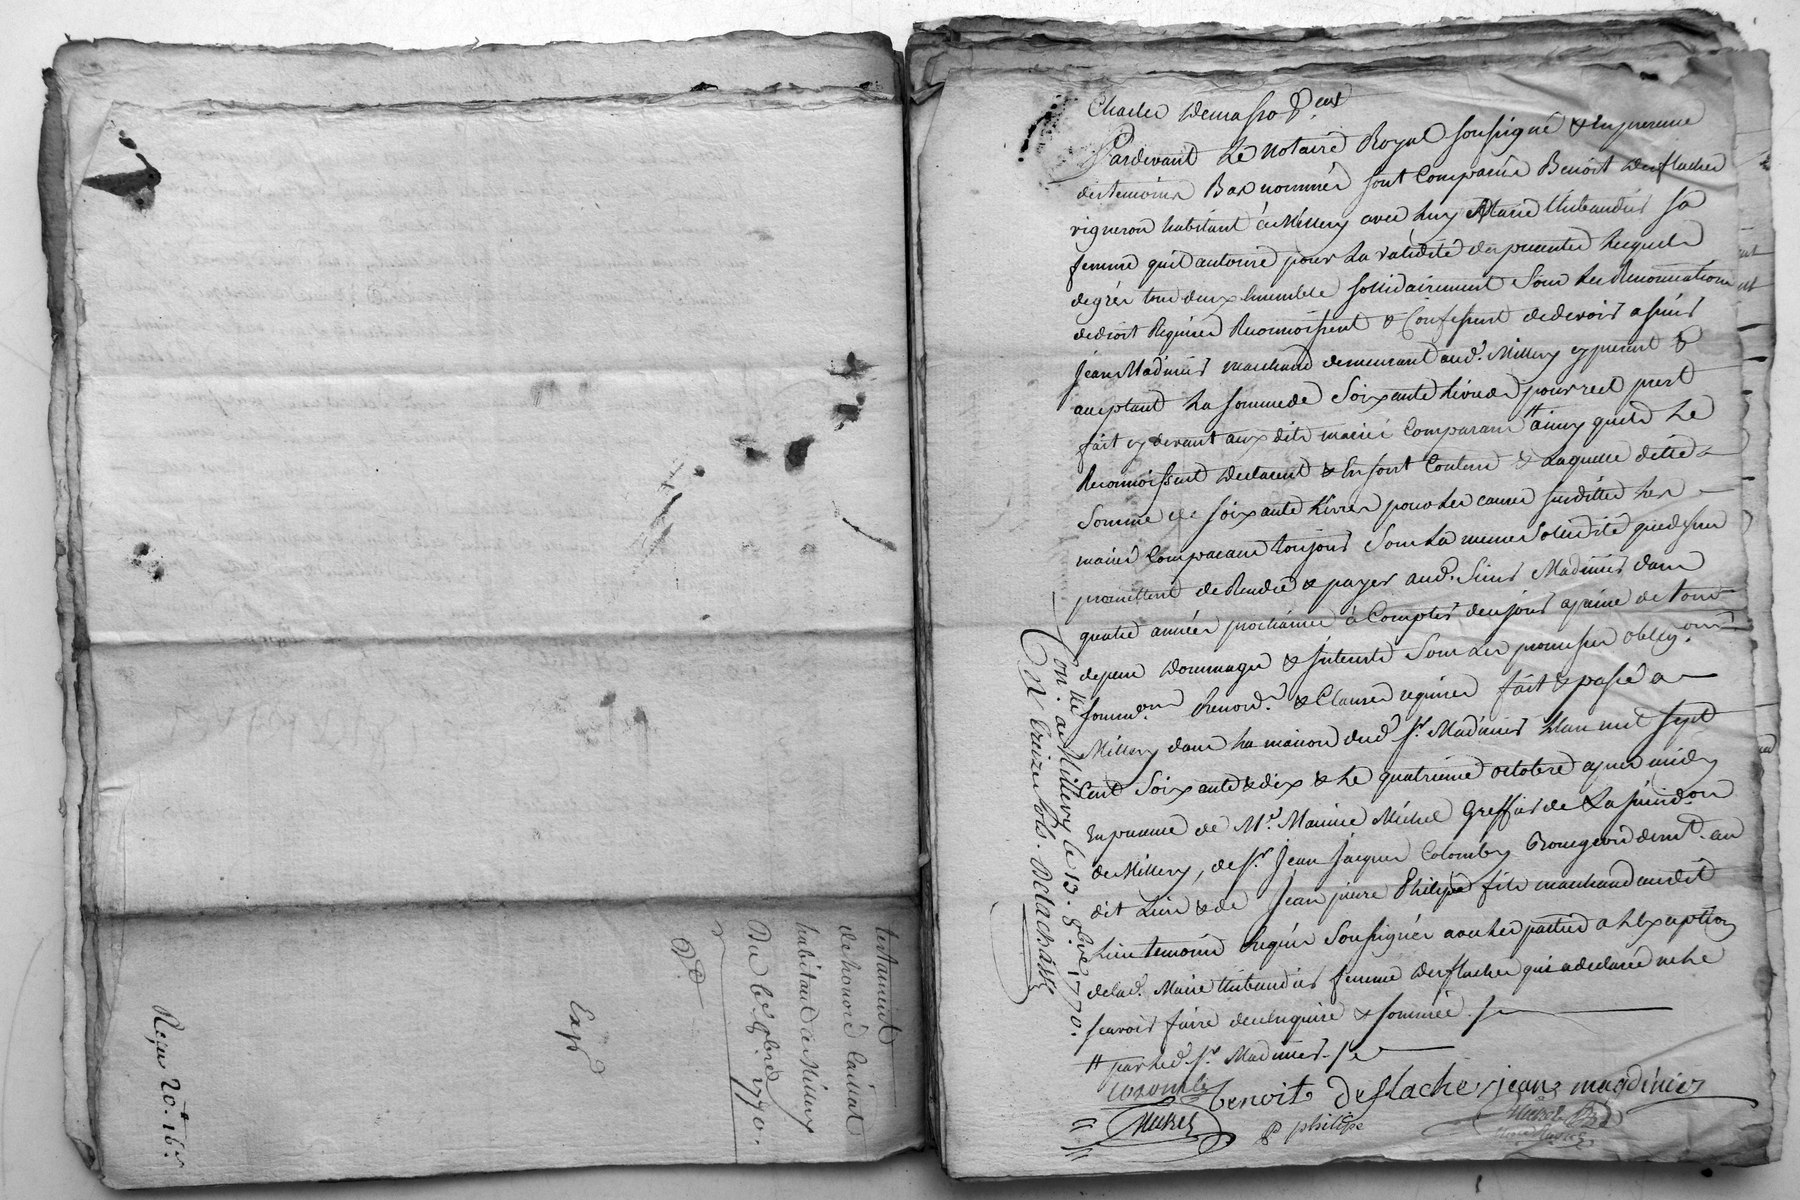 testament
de honoré Caillat
habitant à Millery
Du 6e 9bre 1770.
Exp
Reçu 20.s 16 s
Pardevant Le Notaire Royal soussigné & En presence
des temoins Bas nommés sont Comparus Benoit Desflaches
vigneron habitant à Millery avec luy Marie thibaudier sa
femme qu'il autorise pour La validité des presentes Lesquels
de grés tous deux Ensemble sollidairement Sous Les Renonciations
de droit Requises Reconnoissent & Confessent de devoir a sieur
Jean Madinier marchand demeurant aud. Millery cy present &
aceptant La somme de Soixante Livres pour reel prest
fait cy devant aux dits mariés Comparans # ainsy quils Le
Reconnoissent declarent & En sont Contens & Laquelle ditte
Somme de soixante Livres pour Les causes susdittes Les
mariés Comparans toujours Sous La meme Solidité que dessus
promettent de Rendre & payer aud. Sieur Madinier dans
quatre années prochaines à Compter de ce jour a peine de tous
depens dommages & Interests Sous Les promesses oblig.ons
soumi.ons Renon.ns & Clauses requises fait & passé a
Millery dans La maison dud. Sr. Madinier L'an mil sept
Cent Soixante & dix & Le quatrieme octobre apres midy
En presence de Me. Maurice Michel Greffier de La jurid.on
de Millery, de Sr. Jean Jacques Colomby Bourgeois dem.t au
dit Lieu & de Jean pierre Philipe fils marchand audit
Lieu temoins Requis Soussignés avec Les parties a L'exception
de lad. Marie thibaudier femme Desflaches qui a declarée ne Le
sçavoir faire de ce Enquise & sommée
# par Led. Sr. Madinier
Colomby benoit deflache jean magdinier
Michel P philipe
Con.lle a Millery le 13. 8bre 1770.
R. treize sols. Delachasse